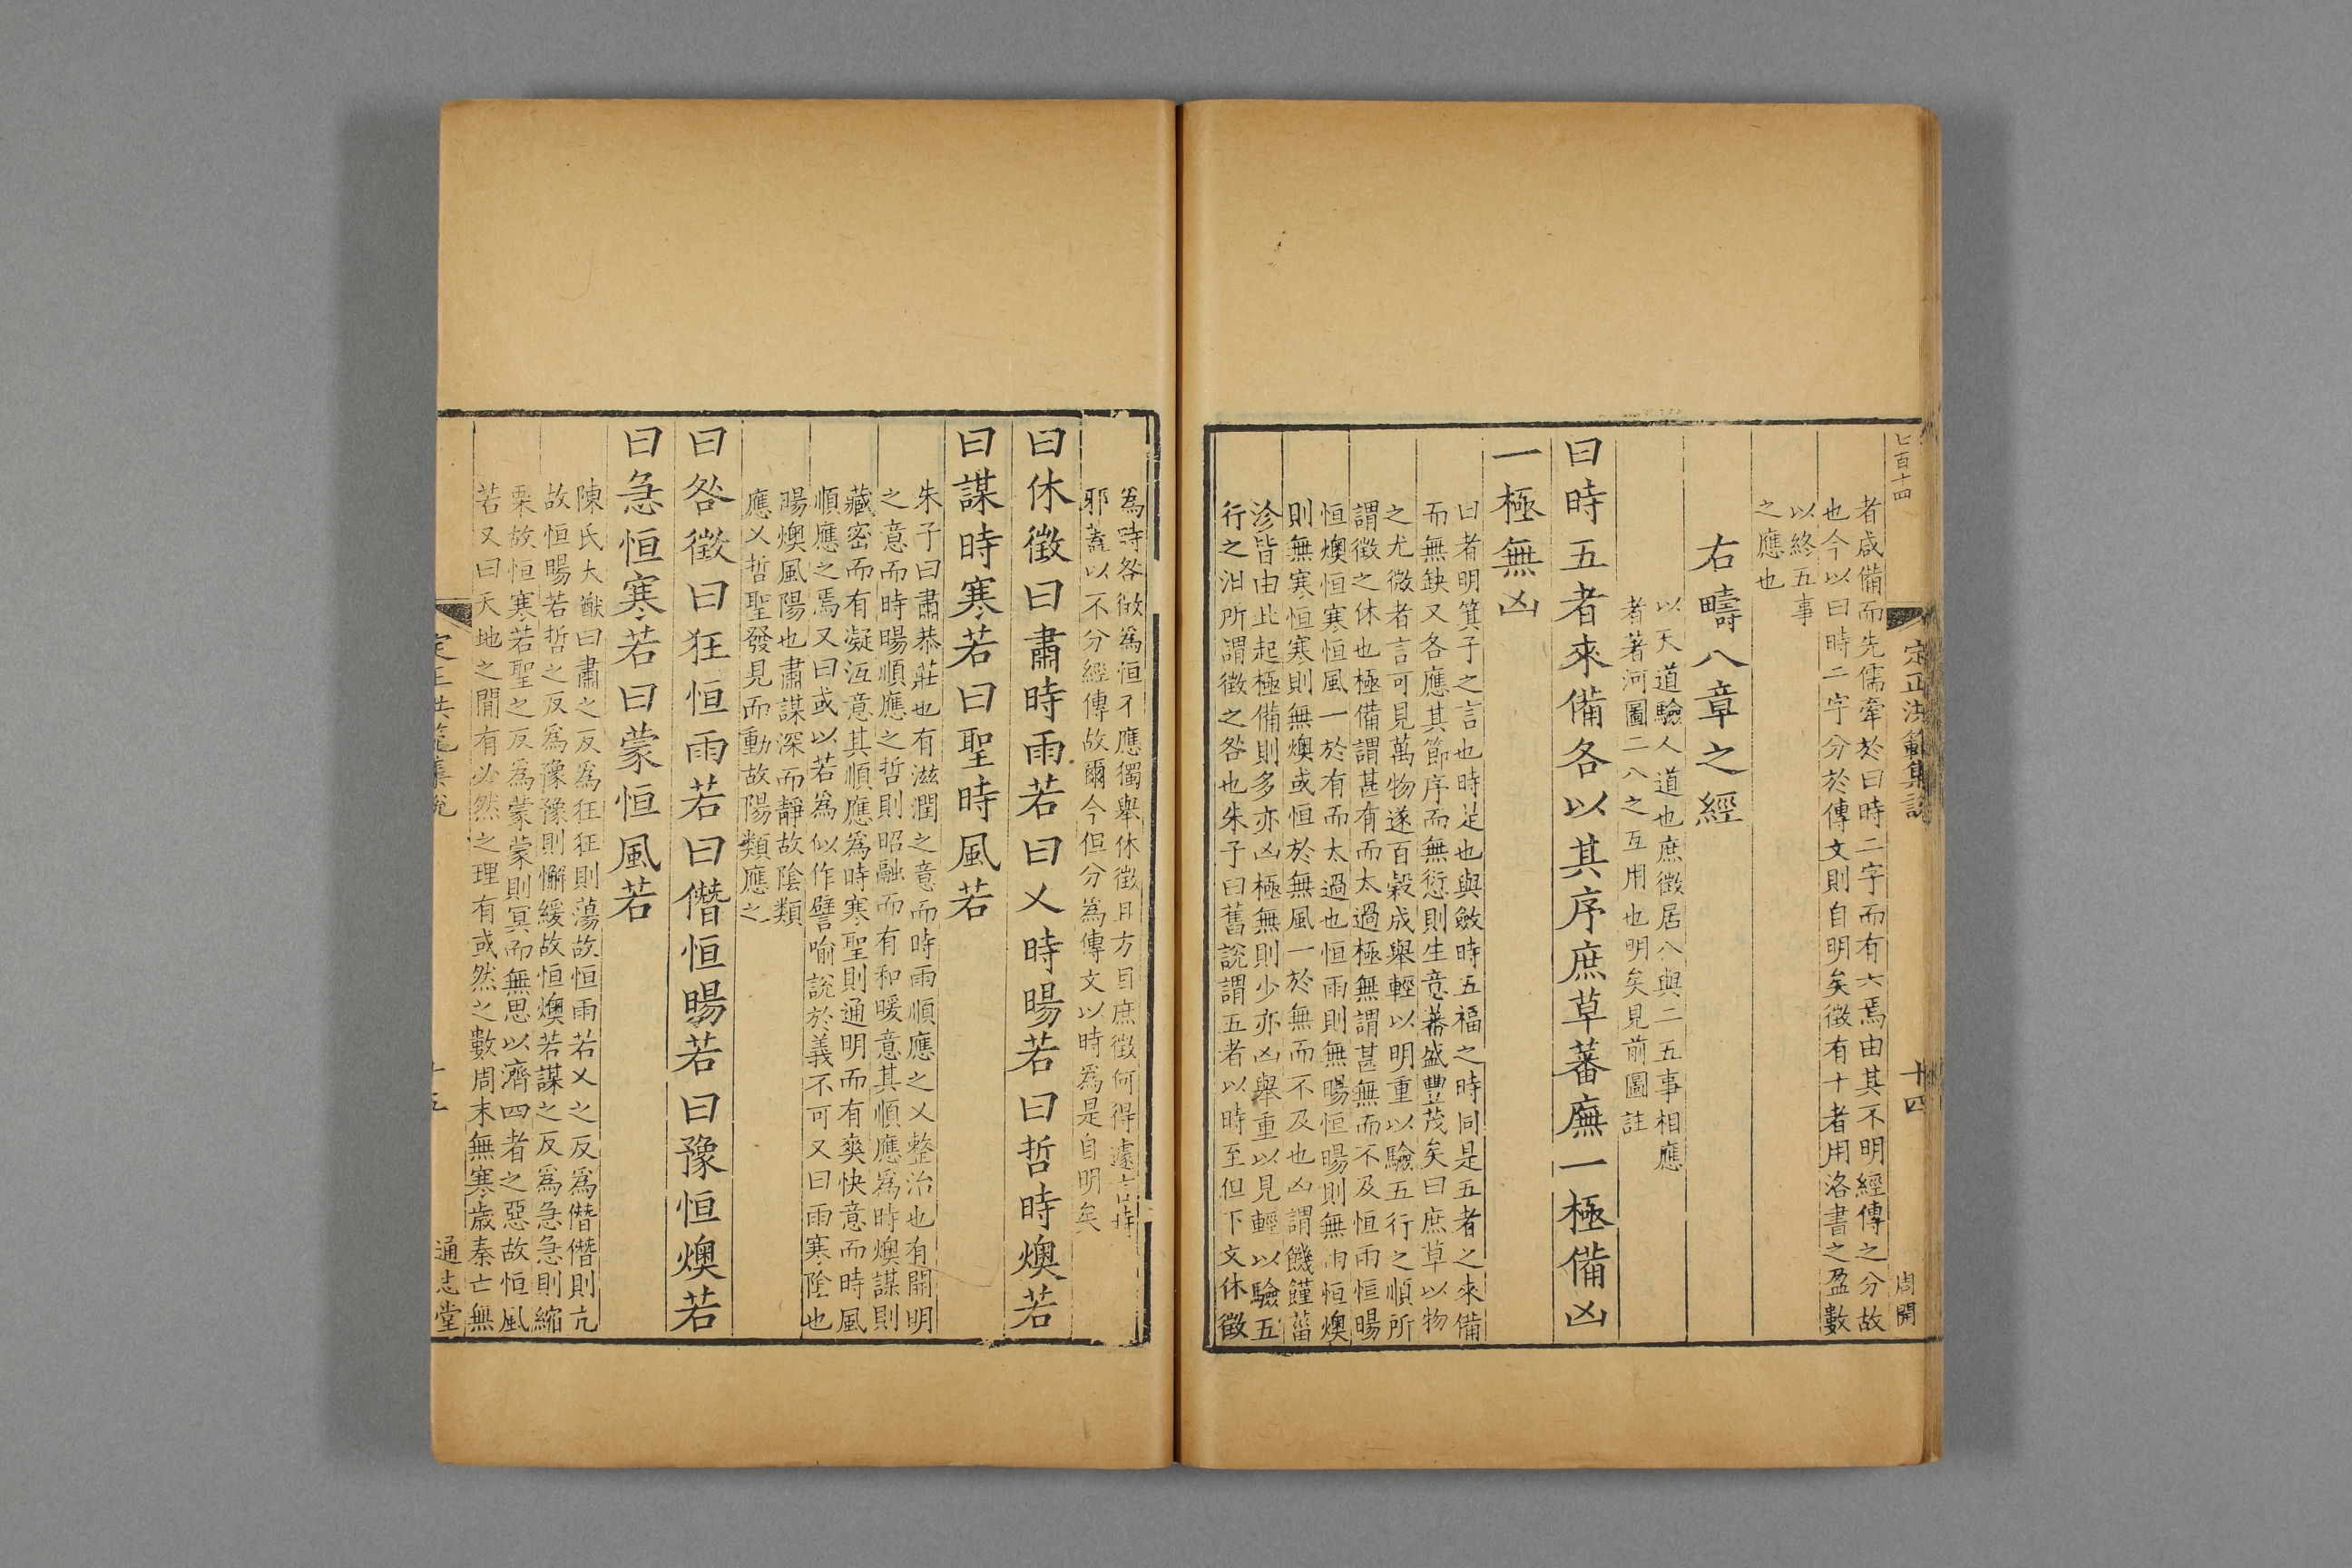 七百十四
定正洪範集說
十四
周開
者咸備而先儒牽於曰時二字而有六焉由其不明經傳之分故
也今以曰時二字分於傳文則自明矣徵有十者用洛書之盈數
以終五事
之應也
右疇八章之經
以天道驗人道也庶徵居八與二五事相應
者著河圖二八之互用也明矣見前圖註
曰時五者來備各以其序庶草蕃廡一極備凶
一極無凶
曰者明箕子之言也時是也與斂時五福之時同是五者之來備
而無缺又各應其節序而無愆則生意蕃盛豐茂矣曰庶草以物
之尤微者言可見萬物遂百穀成舉輕以明重以驗五行之順所
謂徵之休也極備謂甚有而太過極無謂甚無而不及恒雨恒暘
恒燠恒寒恒風一於有而太過也恒雨則無暘恒暘則無雨恒燠
則無寒恒寒則無燠或恒於無風一於無而不及也凶謂饑饉菑
沴皆由此起極備則多亦凶極無則少亦凶舉重以見輕以驗五
行之汩所謂徵之咎也朱子曰舊說謂五者以時至但下文休徵
爲時咎徵爲恒不應獨舉休徵且方目庶徵何得遽言時
邪蓋以不分經傳故爾今但分爲傳文以時爲是自明矣
曰休徵曰肅時雨若曰乂時暘若曰哲時燠若
曰謀時寒若曰聖時風若
朱子曰肅恭莊也有滋潤之意而時雨順應之乂整治也有開明
之意而時暘順應之哲則昭融而有和暖意其順應爲時燠謀則
藏密而有凝沍意其順應爲時寒聖則通明而有爽快意而時風
順應之焉又曰或以若爲似作譬喻說於義不可又曰雨寒陰也
暘燠風陽也肅謀深而靜故陰類
應乂哲聖發見而動故陽類應之
曰咎徵曰狂恒雨若曰僭恒暘若曰豫恒燠若
曰急恒寒若曰蒙恒風若
陳氏大猷曰肅之反爲狂狂則蕩故恒雨若乂之反爲僭僭則亢
故恒暘若哲之反爲豫豫則懈緩故恒燠若謀之反爲急急則縮
栗故恒寒若聖之反爲蒙蒙則冥而無思以濟四者之惡故恒風
若又曰天地之閒有必然之理有或然之數周末無寒歲秦亡無
定正洪範集說
十五
通志堂